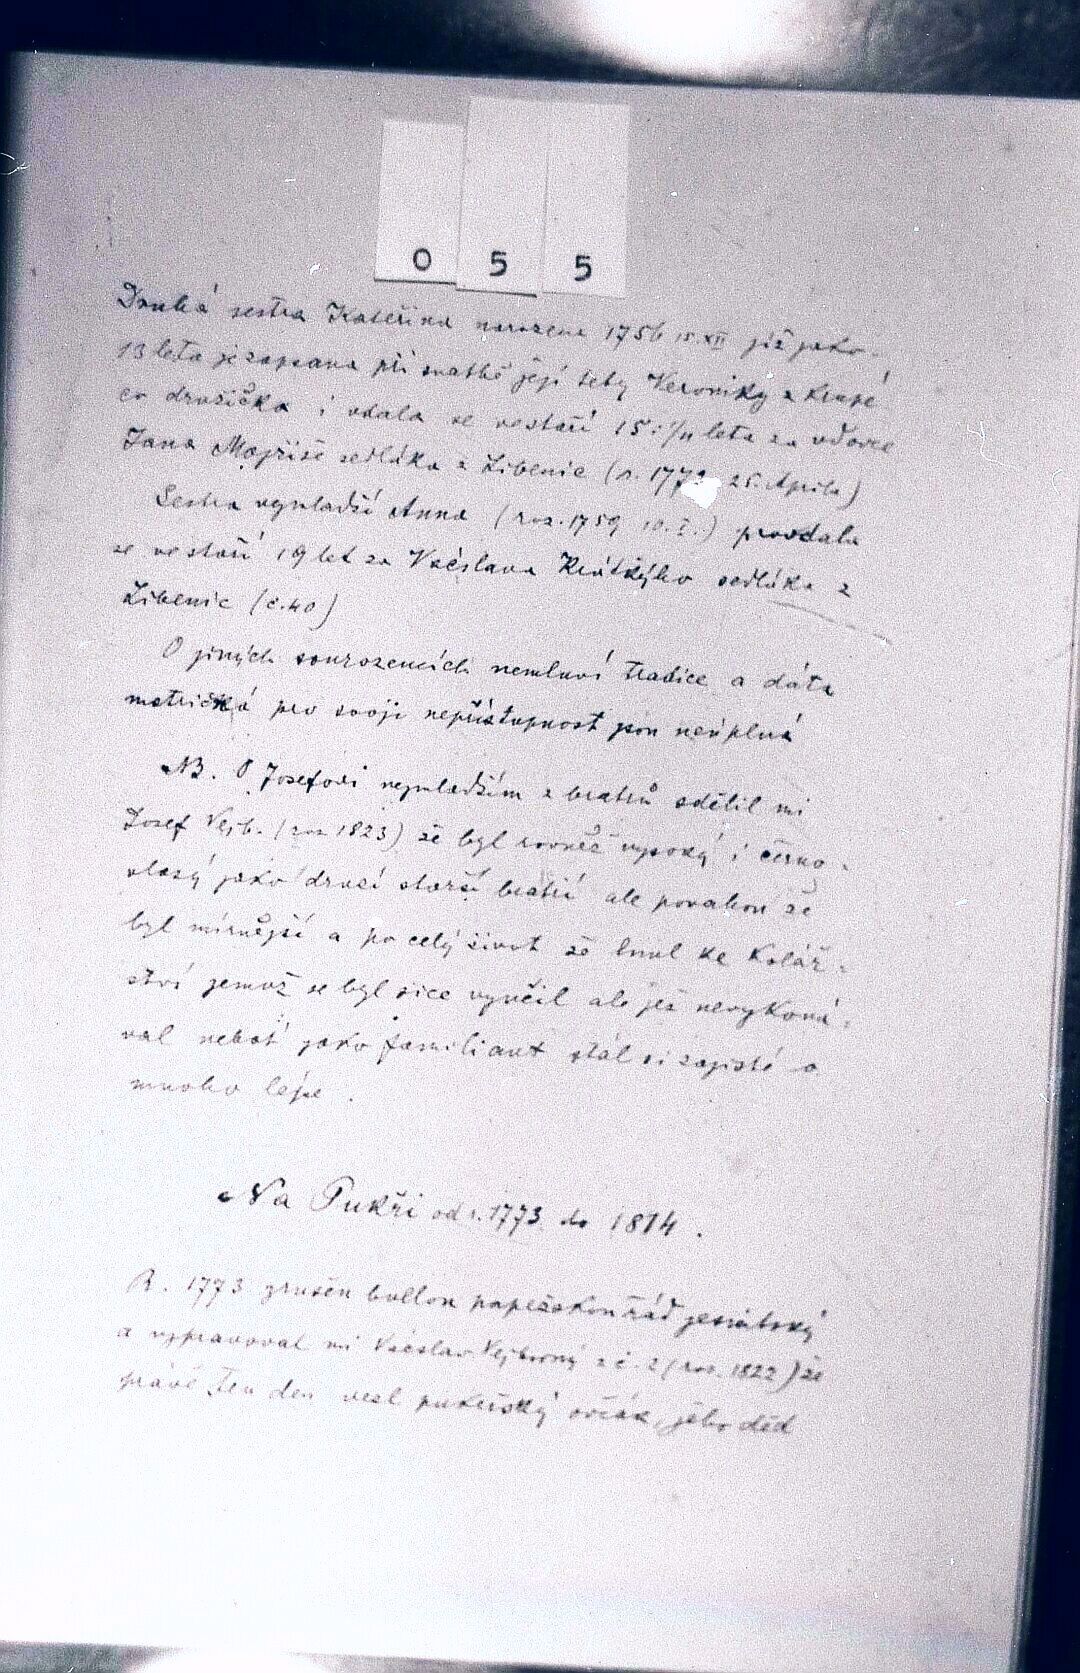 0 5 5
Druhá sestra Kateřina narozena 1756 15 XII již jako
13 letá je zapsana při svatbě její tety Veroniky z Krupé
co družička i vdala se ve stáří 15 leta za vdovce
Jana sedláka z Libenic (r. 1772 25. Aprila)
Sestra nejmladší Anna (roz. 1759 10. I.) provdala
se ve stáří 19 let za Václava Krátkýho sedláka z
Libenic (č. 40)
O jiných sourozencích nemluví tradice a dáta
matrická pro svoji nepřístupnost jsou neúplná
NB. O Josefovi nejmladším z bratrů sdělil mi
Josef Vejb. (roz 1823) že byl rovněž vysoký i černo-
vlasý jako druzí starší bratří ale povahou že
byl mírnější a po celý život že lnul ke kolář-
ství jemuž se byl sice vyučil ale jež nevykoná-
val neboť jako familiant stál si zajisté o
mnoho lépe.
Na Pukři od r. 1773 do 1814.
R. 1773 zrušen bullou papežskou řád jesuitský
a vypravoval mi Václav Vejborný z č. 2 (roz. 1822) že
právě ten den vezl pukeřský ovčák, jeho děd